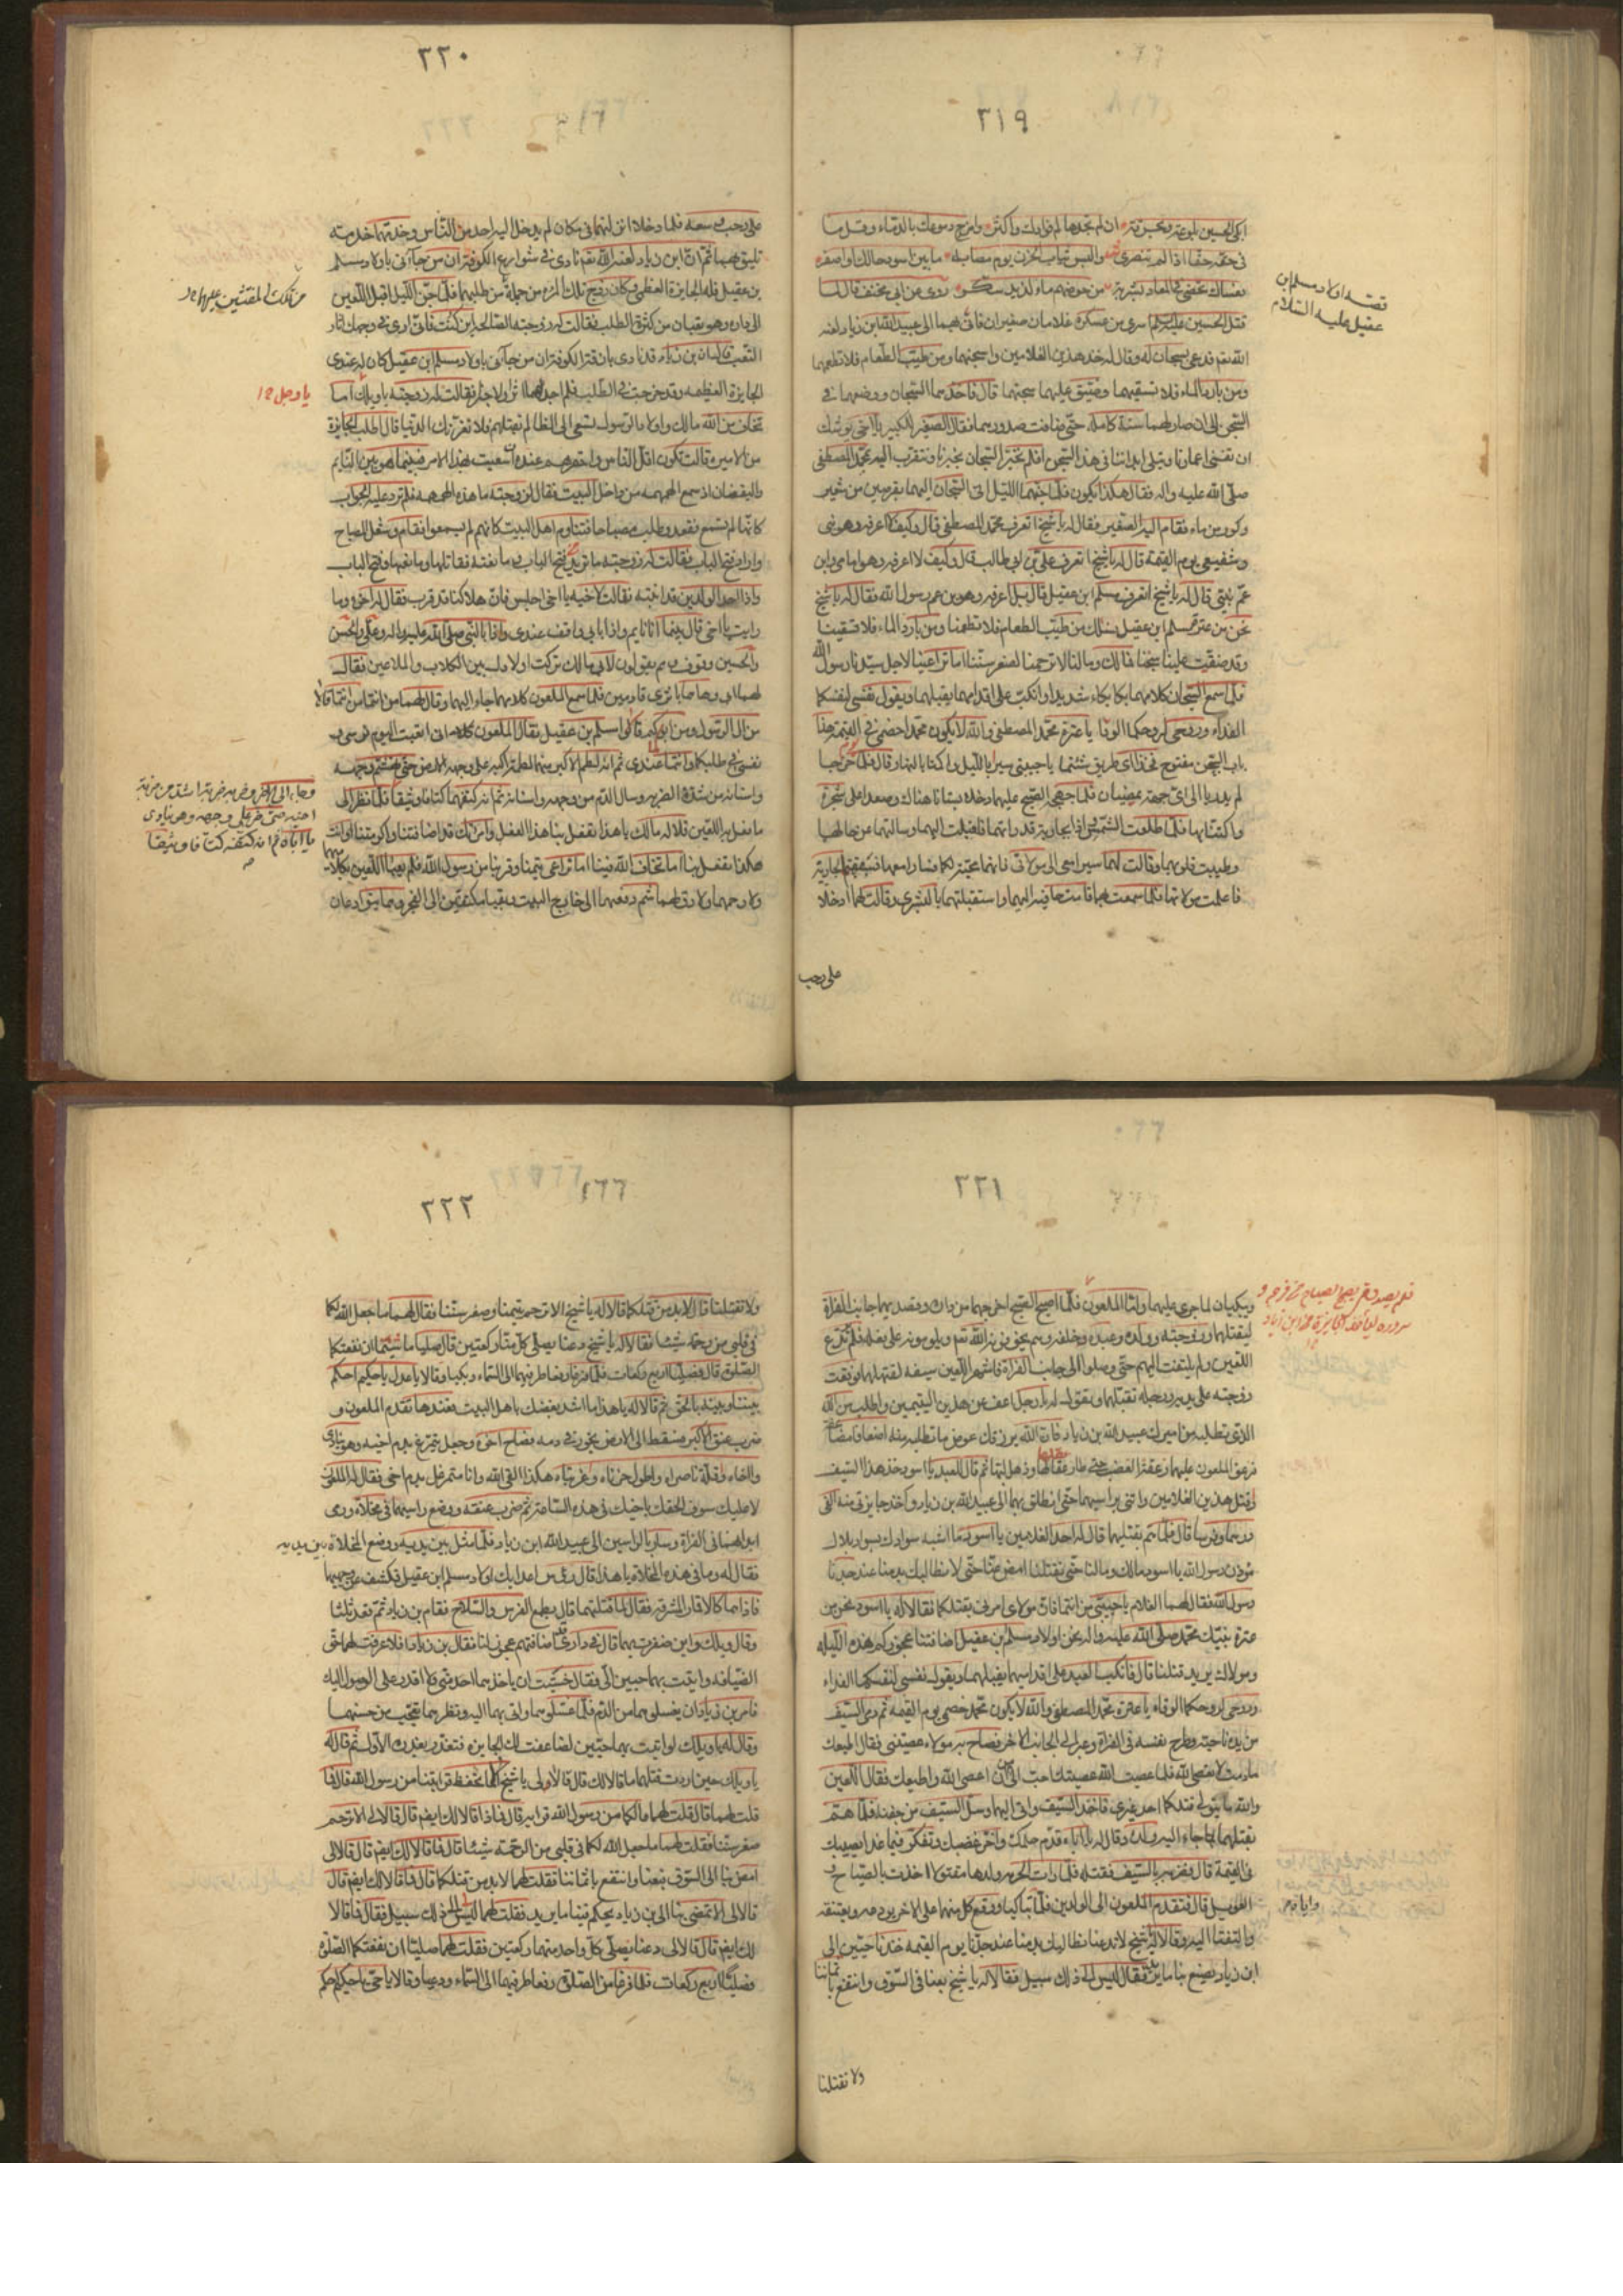 ٣١٩
ابكي الحسين
في حقه حقا اذا لم تنصري والبس ثياب الحزن يوم مصابه ما بين اسود حالك او اصفر
فعساك تحضى في المعاد بشربة من حوضهم ماء لذيذ سكر روى عن ابي مخنف قال لما
قتل الحسين عليه السلام اسرى من عسكره غلامان صغيران فاتى بهما الى عبيد الله ابن زياد لعنه
الله ثم قد دعى بسجان له وقال له خذ هذين الغلامين واسجنهما ومن طيب الطعام فلا تطعمهما
ومن بارد الماء فلا تسقيهما وضيق عليهما سجنهما قال فاخذهما السجان ووضعهما في
السجن الى ان صار لهما سنة كاملة حتى ضاقت صدورهما فقال الصغير للكبير يا اخي يوشك
ان تفنى اعمارنا وتبلى ابداننا في هذا السجن افلم نخبر السجان بخبرنا ونتقرب اليه بمحمد المصطفى
صلى الله عليه واله فقال هكذا يكون فلما جنهما الليل اتى السجان اليهما بقرصين من شعير
وكوز من ماء فقام اليه الصغير فقال له يا شيخ اتعرف محمد المصطفى قال وكيف لا اعرفه وهو نبي
وشفيعي يوم القيمة قال له يا شيخ اتعرف علي بن ابي طالب قال وكيف لا اعرفه وهو امامي وابن
عم نبيي قال له يا شيخ اتعرف مسلم ابن عقيل قال بلى اعرفه وهو بن عم رسول الله فقال له يا شيخ
نحن من عترة مسلم ابن عقيل نسئلك من طيب الطعام فلا تطعمنا ومن بارد الماء فلا تسقينا
وقد ضيقت علينا سجننا فما لك وما لنا لا ترحمنا لصغر سننا اما تراعينا لاجل سيدنا رسول الله
فلما سمع السجان كلامهما بكا بكاء شديدا وانكب على اقدامهما يقبلهما ويقول نفسي لنفسكما
الفداء وروحي لروحكما الوقا يا عترة محمد المصطفى والله لا يكون محمد خصمي في القيمة هذا
باب السجن مفتوح فخذا اي طريق شئتما يا حبيبي سيرا بالليل واكمنا بالنهار قال فلما خرجا
لم يدريا الى اي جهة يمضيان فلما جهى الصبح عليهما دخلا بستانا هناك وصعدا على شجرة
واكتنا بها فلما طلعت الشمس اذا بجارية قد راتهما فاقبلت اليهما وسالتهما عن حالهما
وطيبت قلوبهما وقالت لهما سيرا معي الى مولاتي فانها محبة لكما فسارا معها فسبقتهما الجارية
فاعلمت مولاتها فلما سمعت بهما قامت حافية اليهما واستقبلتهما بالبشرى وقالت لهما ادخلا
على رحب
قصة اولاد مسلم ابن
عقيل عليه السلام
٣٢٠
على رحب وسعة فلما دخلا انزلتهما في مكان لم يدخل اليه احد من الناس وخدمتهما خدمته
تليق بهما ثم ان ابن زياد لعنه الله نادى في شوارع الكوفة ان من جاءني باولاد مسلم
بن عقيل فله الجايزة العظمى وكان زوج تلك المرءة من جملة من طلبهما فلما جن الليل اقبل اللعين
الى داره وهو تعبان من كثرة الطلب فقالت له زوجته الصالحة اين كنت فاني ارى في وجهك اثار
التعب قال ان بن زياد قد نادى بازقة الكوفة ان من جاءني باولاد مسلم ابن عقيل كان له عندي
الجايزة العظيمة وقد خرجت في الطلب فلم اجد لهما اثرا ولا خبرا فقالت له زوجته يا ويلك اما
تخاف من الله ما لك واولاد الرسول تسعى الى الظالم بقتلهم فلا تغرنك الدنيا قال اطلب الجايزة
من الامير قالت تكون اقل الناس واحقرهم عنده ان سعيت بهذا الامر فبينما هو بين النايم
واليقضان اذ سمع الهمهمة من داخل البيت فقال لزوجته ما هذه الهمهمة فلم ترد عليه الجواب
كانها لم تسمع فقعد وطلب مصباحا فتناوم اهل البيت كانهم لم يسمعوا فقام وشعل المصباح
واراد فتح الباب فقالت له زوجته ما تريد بفتح الباب ومانعته فقاتلها ومانعها وفتح الباب
واذا احد الولدين قد انتبه فقالت لاخيه يا اخي اجلس فان هلاكنا قد قرب فقال له اخوه وما
رايت يا اخي قال بينما انا نايم واذا بابي واقف عندي واذا بالنبي صلى الله عليه واله وعلي والحسن
والحسين وقوف وهم يقولون لابي ما لك تركت اولادك بين الكلاب والملاعين فقال
لهم ابي وها هما باثري قادمين فلما سمع الملعون كلامهما جاء اليهما وقال لهما من انتما قالا
من ال الرسول ومن ابوكم قالا مسلم بن عقيل فقال الملعون
نفسي في طلبكما وانتما عندي ثم انه لطم الاكبر منهما لطمة اكبه على وجهه الارض حتى تهشم وجهه
واسنانه من شدة الضربة وسال الدم من وجهه واسنانه ثم انه كتفهما كتافا وثيقا فلما نظرا الى
ما يفعل به اللعين قالا له ما لك يا هذا تفعل بنا هذا الفعل وامراتك قد اضافتنا واكرمتنا وانت
هكذا تفعل بنا اما تخاف الله فينا اما تراعي يتمنا وقربنا من رسول الله فلم يعبا اللعين بكلامهما
ولا رحمهما ولا رق لهما ثم دفعهما الى خارج البيت وبقيا مكتفين الى الفجر وهما يتوادعان
يا رجل ١٢
وجاء الى الاخر وضربه ضربة اشد من ضربة
اخيه حتى خر على وجهه وهو ينادي
يا اباه ثم انه كتفه كتافا وثيقا
٣٢١
ويبكيان لما جرى عليهما واما الملعون فلما اصبح الصبح اخرجهما من داره وقصد بهما جانب الفرات
ليقتلهما وزوجته وولده وعبده خلفه وهم يخوفونه الله تعالى ويلومونه على فعله فلم يرتدع
اللعين ولم يلتفت اليهم حتى وصلوا الى جانب الفرات فاشهر اللعين سيفه لقتلهما فوقعت
زوجته على يديه ورجليه تقبلهما وتقول له يا رجل اعف عن هذين اليتيمين واطلب من الله
الذي تطلبه من اميرك عبيد الله بن زياد فان الله يرزقك عوض ما تطلبه منه اضعافا مضاعفة
فزعق الملعون عليها زعقة الغضب حتى طار عقلها وذهل لبها ثم قال للعبد يا اسود خذ هذا السيف
واقتل هذين الغلامين واتني براسيهما حتى انطلق بهما الى عبيد الله بن زياد واخذ جايزتي منه الفي
درهما وفرسا قال فلما هم بقتلهما قال له احد الغلامين يا اسود ما اشبه سوادك بسواد بلال
مؤذن رسول الله يا اسود ما لك وما لنا حتى تقتلنا امض عنا حتى لا نطالبك بدمنا عند جدنا
رسول الله فقال لهما الغلام يا حبيبي من انتما فان مولاي امرني بقتلكما فقالا له يا اسود نحن من
عترة نبيك محمد صلى الله عليه واله نحن اولاد مسلم بن عقيل اضافتنا عجوزكم هذه الليلة
ومولاك يريد قتلنا قال فانكب العبد على اقدامهما يقبلهما ويقول نفسي لنفسكما الفداء
وروحي لروحكما الوقاء يا عترة محمد المصطفى والله لا يكون محمد خصمي يوم القيمة ثم رمى السيف
من يده ناحية وطرح نفسه في الفرات وعبر الى الجانب الاخر فصاح به مولاه عصيتني فقال اطيعك
ما دمت لا تعصي الله فلما عصيت الله عصيتك احب الى من ان اعصي الله واطيعك فقال اللعين
والله ما يتولى قتلكما احد غيري فاخذ السيف واتى اليهما وسل السيف من جفنه فلما هم
بقتلهما جاء اليه ولده وقال له يا اباه قدم حلمك واخر غضبك وتفكر فيما غدا يصيبك
في القيمة قال فضربه بالسيف فقتله فلما رات الحرمة ولدها مقتولا اخذت بالصياح و
العويل قال فتقدم الملعون الى الولدين فلما تباكيا ووقع كل منهما على الاخر يودعه ويعتنقه
والتفتا اليه وقالا له يا شيخ لا تدعنا نطالبك بدمنا عند جدنا يوم القيمة خذنا حيين الى
ابن زياد يصنع بنا ما يريد فقال ليس الى ذلك سبيل فقالا له يا شيخ بعنا في السوق وانتفع باثماننا
ولا تقتلنا
٣٢٢
ولا تقتلنا قال لا بد من قتلكما قالا له يا شيخ الا ترحم يتمنا وصغر سننا فقال لهما ما جعل الله لكما
في قلبي من رحمة شيئا فقالا له يا شيخ دعنا يصلي كل منا ركعتين قال صليا ما شئتما ان نفعتكما
الصلوة قال فصليا اربع ركعات فلما فرغا رفعا طرفيهما الى السماء وبكيا وقالا يا عدل يا حكيم احكم
بيننا وبينه بالحق ثم قالا له يا هذا ما اشد بغضك باهل البيت فعندها تقدم الملعون و
ضرب عنق الاكبر فسقط الى الارض يخور في دمه فصاح اخوه وجعل يتمرغ بدم اخيه وهو ينادي
وااخاه واقلة ناصراه واطول حزناه واغربتاه هكذا القى الله وانا متمرغل بدم اخي فقال له الملعون
لا عليك سوف الحقك باخيك في هذه الساعة ثم ضرب عنقه ووضع راسيهما في مخلاة ورمى
ابدانهما في الفرات وسار بالراسين الى عبيد الله ابن زياد فلما مثل بين يديه وضع المخلاة بين يديه
فقال له وما في هذه المخلاة يا هذا قال رؤس اعدائك اولاد مسلم ابن عقيل فكشف عن وجهيهما
فاذا هما كالاقمار المشرقة فقال لم قتلتهما قال بطمع الفرس والسلاح فقام بن زياد ثم قعد ثلثا
وقال ويلك واين ضفرت بهما قال في داري وقد اضافتهم عجوز لنا فقال بن زياد افلا عرفت لهما حق
الضيافة واتيت بهما حيين الي فقال خشيت ان ياخذهما احد مني ولا اقدر على الوصول اليك
فامر بن زياد ان يغسلوهما من الدم فلما غسلوهما واتى بهما اليه ونظرهما تعجب من حسنهما
وقال له يا ويلك لو اتيت بهما حيين لضاعفت لك الجايزة فتعذر بعذره الاول ثم قال له
يا ويلك حين اردت قتلهما ما قالا لك قال قالا لي يا شيخ اما تحفظ قرابتنا من رسول الله قال فما
قلت لهما قال قلت لهما ما لكما من رسول الله قرابة قال فماذا قالا لك ايضا قال قالا لي الا ترحم
صغر سننا فقلت لهما ما جعل الله لكما في قلبي من الرحمة شيئا قال فما قالا لك ايضا قال قالا لي
امض بنا الى السوق فبعنا وانتفع باثماننا فقلت لهما لا بد من قتلكما قال فما قالا لك ايضا قال
قالا لي الا تمضي بنا الى بن زياد يحكم فينا ما يريد فقلت لهما ليس الى ذلك سبيل فقال فما قالا
لك ايضا قال قالا لي دعنا يصلي كل واحد منهما ركعتين فقلت لهما صليا ان نفعتكما الصلوة
فصليا اربع ركعات فلما فرغا من الصلوة رفعا طرفيهما الى السماء ودعيا وقالا يا حي يا حكيم احكم